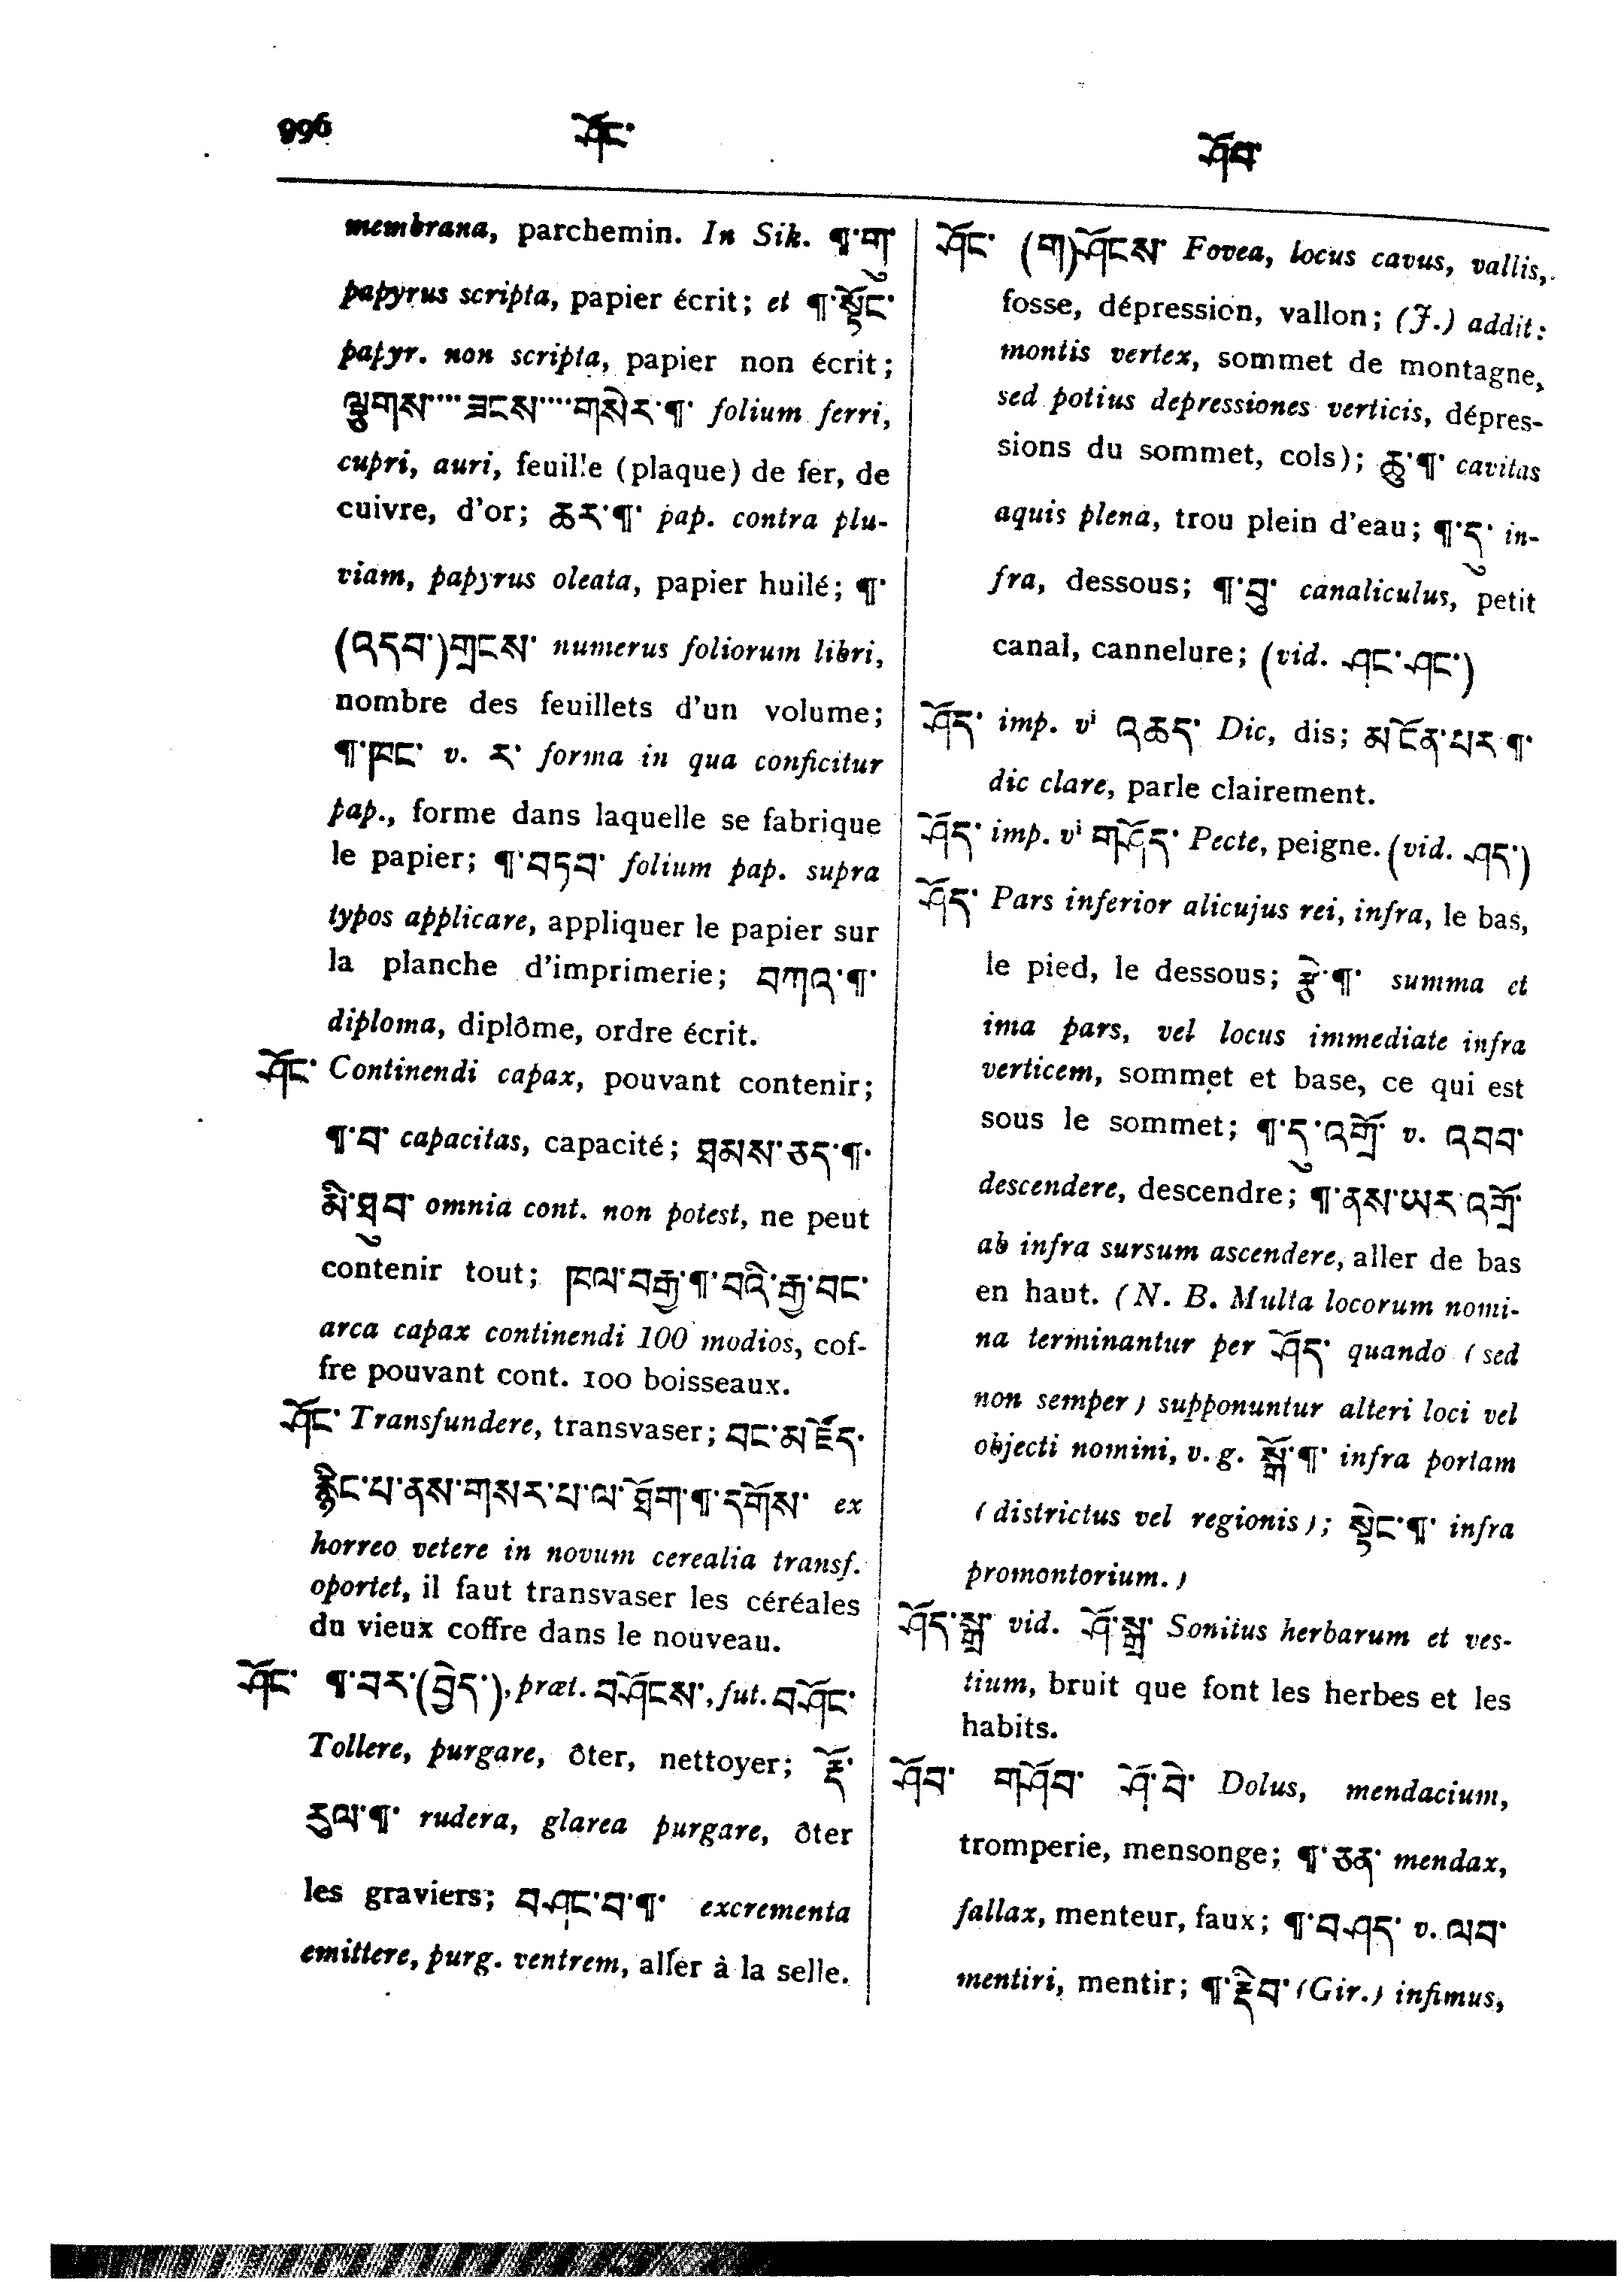 996
ཤོང་
ཤོབ་
membrana, parchemin. In Sik. ¶་གུ་
papyrus scripta, papier écrit; et ¶་སྟོང་
papyr. non scripta, papier non écrit;
ལྕགས་་་་ཟངས་་་་གསེར་¶་ folium ferri,
cupri, auri, feuille (plaque) de fer, de
cuivre, d'or; ཆར་¶་ pap. contra plu-
viam, papyrus oleata, papier huilé; ¶་
(འདབ་)གྲངས་ numerus foliorum libri,
nombre des feuillets d'un volume;
¶་ཁང་ v. ར་ forma in qua conficitur
pap., forme dans laquelle se fabrique
le papier; ¶་བཏབ་ folium pap. supra
typos applicare, appliquer le papier sur
la planche d'imprimerie; བཀའ་¶་
diploma, diplôme, ordre écrit.
ཤོང་ Continendi capax, pouvant contenir;
¶་བ་ capacitas, capacité; ཐམས་ཅད་¶་
མི་ཐུབ་ omnia cont. non potest, ne peut
contenir tout; ཁལ་བརྒྱ་¶་བའི་རྒྱ་བང་
arca capax continendi 100 modios, cof-
fre pouvant cont. 100 boisseaux.
ཤོང་ Transfundere, transvaser; བང་མཛོད་
རྙིང་པ་ནས་གསར་པ་ལ་ཐོག་¶་དགོས་ ex
horreo vetere in novum cerealia transf.
oportet, il faut transvaser les céréales
du vieux coffre dans le nouveau.
ཤོང་ ¶་བར་(བྱེད་), præt. བཤོངས་, fut. བཤོང་
Tollere, purgare, ôter, nettoyer; རྡོ་
རུལ་¶་ rudera, glarea purgare, ôter
les graviers; བཤང་བ་¶་ excrementa
emittere, purg. ventrem, aller à la selle.
ཤོང་ (ག)ཤོངས་ Fovea, locus cavus, vallis,
fosse, dépression, vallon; (J.) addit:
montis vertex, sommet de montagne,
sed potius depressiones verticis, dépres-
sions du sommet, cols); ཆུ་¶་ cavitas
aquis plena, trou plein d'eau; ¶་དུ་ in-
fra, dessous; ¶་བུ་ canaliculus, petit
canal, cannelure; (vid. ཤང་ཤང་)
ཤོད་ imp. vⁱ འཆད་ Dic, dis; མངོན་པར་¶་
dic clare, parle clairement.
ཤོད་ imp. vⁱ གཤོད་ Pecte, peigne. (vid. ཤད་)
ཤོད་ Pars inferior alicujus rei, infra, le bas,
le pied, le dessous; རྩེ་¶་ summa et
ima pars, vel locus immediate infra
verticem, sommet et base, ce qui est
sous le sommet; ¶་དུ་འགྲོ་ v. འབབ་
descendere, descendre; ¶་ནས་ཡར་འགྲོ་
ab infra sursum ascendere, aller de bas
en haut. (N. B. Multa locorum nomi-
na terminantur per ཤོད་ quando (sed
non semper) supponuntur alteri loci vel
objecti nomini, v. g. སྒོ་¶་ infra portam
(districtus vel regionis); སྟེང་¶་ infra
promontorium.)
ཤོད་སྒྲ་ vid. ཤོ་སྒྲ་ Sonitus herbarum et ves-
tium, bruit que font les herbes et les
habits.
ཤོབ་ གཤོབ་ ཤོ་བེ་ Dolus, mendacium,
tromperie, mensonge; ¶་ཅན་ mendax,
fallax, menteur, faux; ¶་བཤད་ v. ལབ་
mentiri, mentir; ¶་རྡིབ་ (Gir.) infimus,